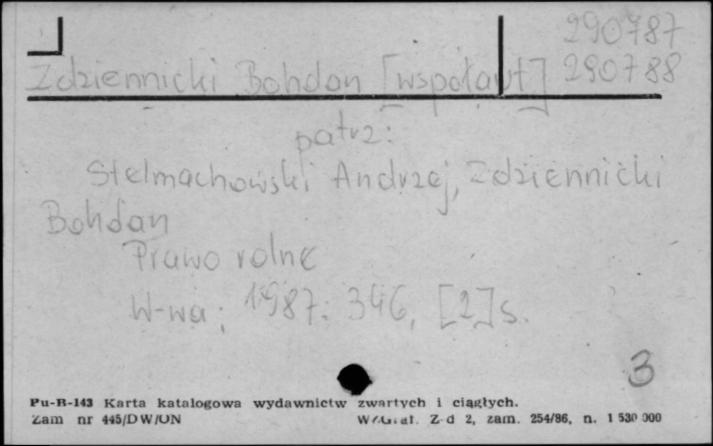 290787
Zdziennicki Bohdan [współaut] 290788
patrz:
Stelmachowski Andrzej, Zdziennicki
Bohdan
Prawo rolne
W-wa; 1987. 346, [2] s.
3
Pu-B-143 Karta katalogowa wydawnictw zwartych i ciągłych.
Zam nr 445/DW/UN Z-d 2, zam. 254/86, n. 1 530 000